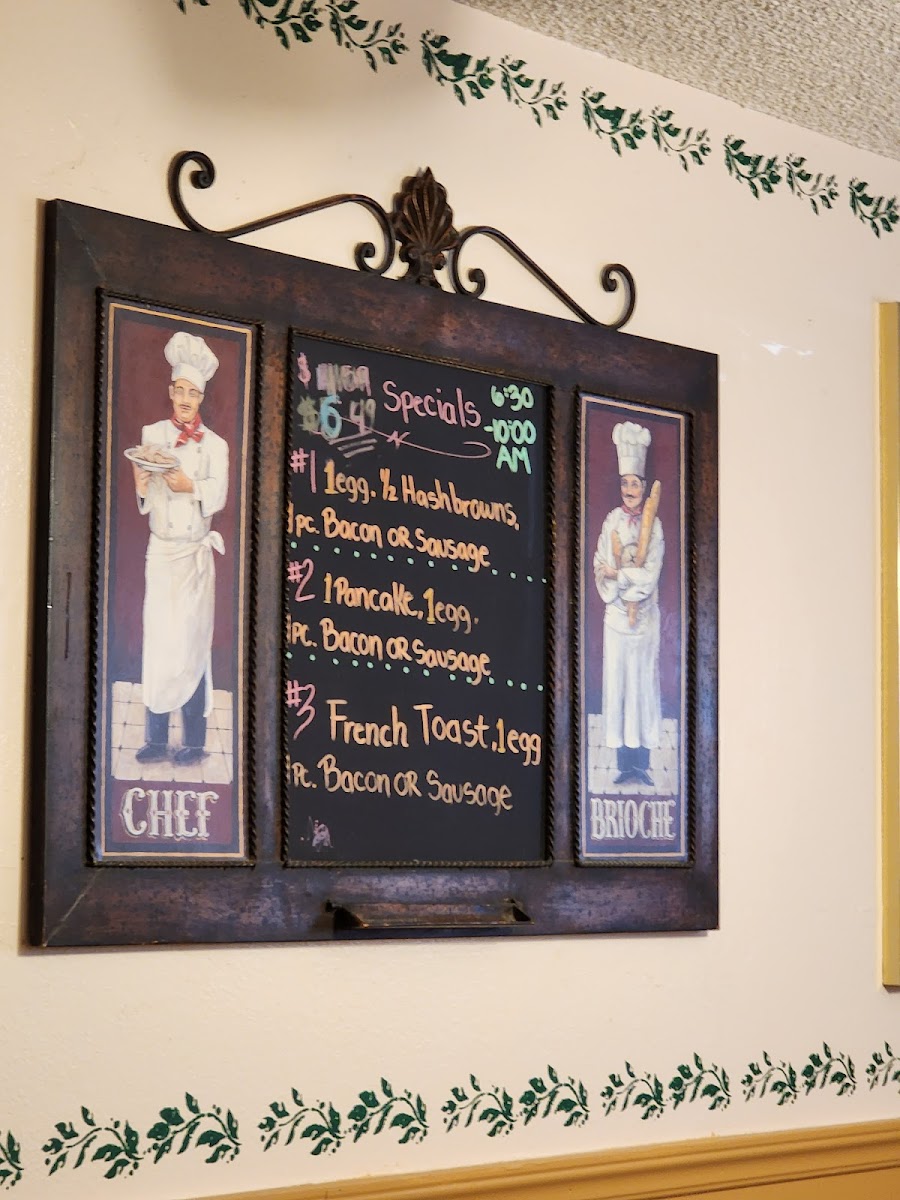 $6.49
Specials
6:30
-10:00
AM
#1 1egg. ½ Hashbrowns,
1pc. Bacon OR Sausage
#2 1 Pancake, 1egg.
1pc. Bacon OR Sausage
#3 French Toast, 1egg
1pc. Bacon OR Sausage
CHEF
BRIOCHE